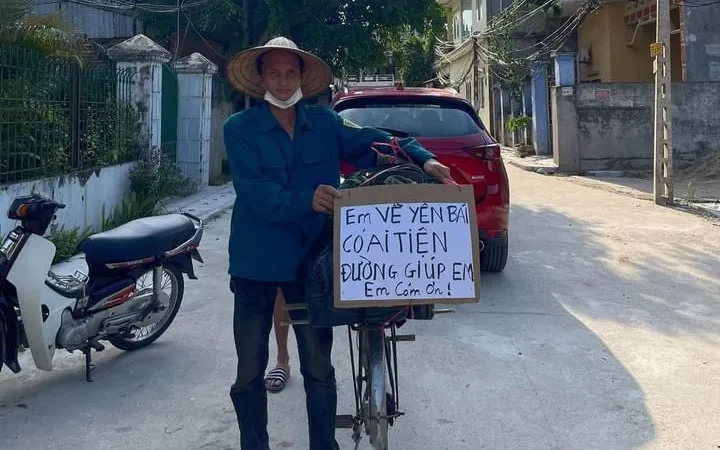 Em VỀ YÊN BÁI
CÓ AI TIỆN
ĐƯỜNG GIÚP EM
Em Cám Ơn!